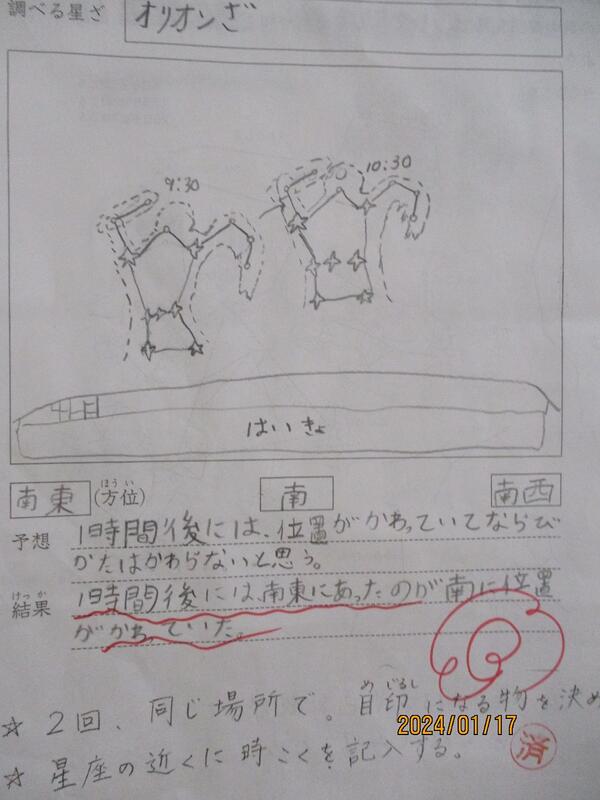 調べる星ざ オリオンざ
9:30 10:30
はいきょ
南東 (方位) 南 南西
ほうい
予想 1時間後には、位置がかわっていてならび
かたはかわらないと思う。
けっか
結果 1時間後には、南東にあったのが南に位置
がかわっていた。
めじるし
☆ 2回、同じ場所で。目印になる物を決め
2024/01/17
☆ 星座の近くに時こくを記入する。
済